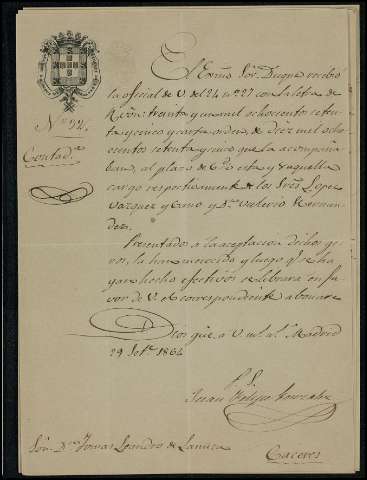 El Exmo Sôr. Duque recibió
la oficial de V. del 24 nº 227 con la letra de
R von treinta y un mil ochocientos seten-
ta y cinco y carta orden de diez mil ocho-
cientos setenta y cinco que la acompaña-
ban, al plazo de 6 esta y aquella
cargo respectivamente de los Sres Lopez
Vazquez y Cano y Dn Valerio Hernan-
dez.
Nº 92.
Contadª
Presentados a la aceptacion dichos gi-
ros, la han merecido y luego q. se ha-
yan hecho efectivos se librara en fa-
vor de V. el correspondiente abonaré
Dios gue a V. ms. as. Madrid
29 Setre 1864
P. S.
Juan Felipe
Sôr. Dn Tomas Leandro de Lanuza
Caceres